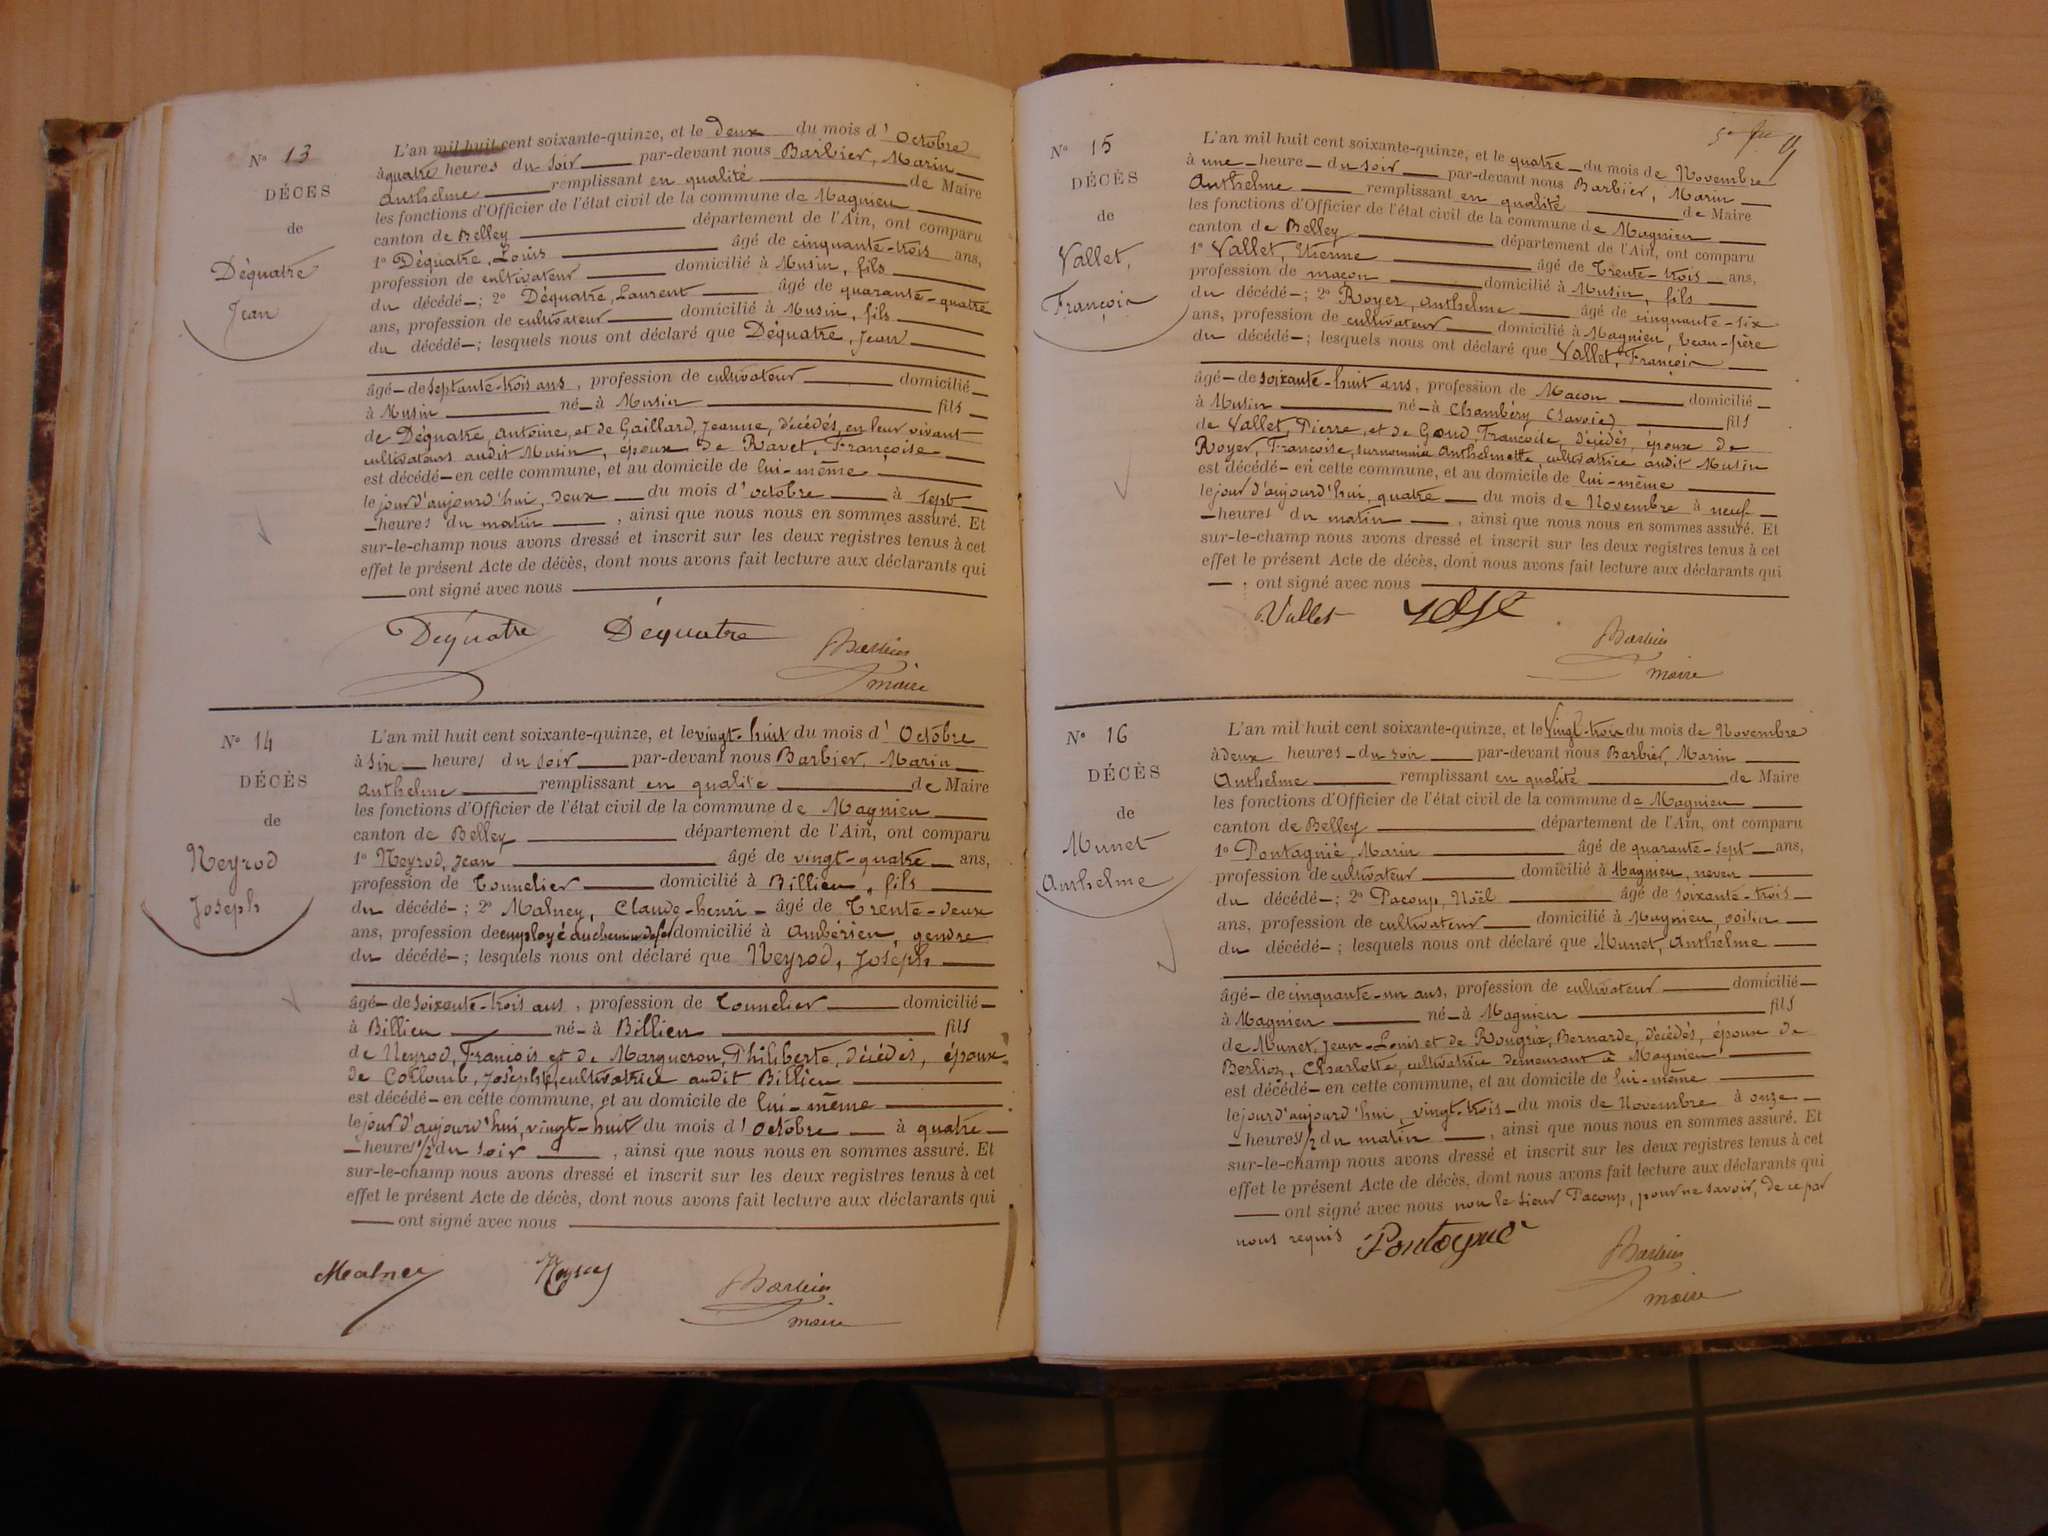 N° 13
DÉCES
de
Déquatre
Jean
L'an mil huit cent soixante-quinze, et le deux du mois d'Octobre
à quatre heures du soir par-devant nous Barbier, Marin
Anthelme remplissant en qualité de Maire
les fonctions d'Officier de l'état civil de la commune de Magnieu
canton de Belley département de l'Ain, ont comparu
1° Déquatre, Louis âgé de cinquante-trois ans,
profession de cultivateur domicilié à Musin, fils
du décédé ; 2° Déquatre, Laurent âgé de quarante-quatre
ans, profession de cultivateur domicilié à Musin, fils
du décédé ; lesquels nous ont déclaré que Déquatre, Jean
âgé de septante-trois ans, profession de cultivateur domicilié
à Musin né à Musin fils
de Déquatre, Antoine, et de Gaillard, Jeanne, décédés, en leur vivant
cultivateurs audit Musin, époux de Ravet, Françoise
est décédé en cette commune, et au domicile de lui-même
le jour d'aujourd'hui, deux du mois d'octobre à sept
heures du matin , ainsi que nous nous en sommes assuré. Et
sur-le-champ nous avons dressé et inscrit sur les deux registres tenus à cet
effet le présent Acte de décès, dont nous avons fait lecture aux déclarants qui
ont signé avec nous
Déquatre Déquatre Barbier
maire
N° 14
DÉCÈS
de
Neyrod
Joseph
L'an mil huit cent soixante-quinze, et le vingt-huit du mois d'Octobre
à six heures du soir par-devant nous Barbier, Marin
Anthelme remplissant en qualité de Maire
les fonctions d'Officier de l'état civil de la commune de Magnieu
canton de Belley département de l'Ain, ont comparu
1° Neyrod, Jean âgé de vingt-quatre ans,
profession de Tonnelier domicilié à Billieu, fils
du décédé ; 2° Malney, Claude-henri âgé de Trente-deux
ans, profession de employé au chemin de fer domicilié à Ambérieu, gendre
du décédé ; lesquels nous ont déclaré que Neyrod, Joseph
âgé de soixante-trois ans, profession de Tonnelier domicilié
à Billieu né à Billieu fils
de Neyrod, François et de Margueron, Philiberte, décédés, époux
de Collomb, Josephte, cultivatrice audit Billieu
est décédé en cette commune, et au domicile de lui-même
le jour d'aujourd'hui, vingt-huit du mois d'octobre à quatre
heures 1/2 du soir , ainsi que nous nous en sommes assuré. Et
sur-le-champ nous avons dressé et inscrit sur les deux registres tenus à cet
effet le présent Acte de décès, dont nous avons fait lecture aux déclarants qui
ont signé avec nous
Malney Barbier
maire
N° 15
DÉCÈS
de
Vallet,
François
L'an mil huit cent soixante-quinze, et le quatre du mois de Novembre
à une heure du soir par-devant nous Barbier, Marin
Anthelme remplissant en qualité de Maire
les fonctions d'Officier de l'état civil de la commune de Magnieu
canton de Belley département de l'Ain, ont comparu
1° Vallet, Etienne âgé de Trente-trois ans,
profession de maçon domicilié à Musin, fils
du décédé ; 2° Royer, Anthelme âgé de cinquante-six
ans, profession de cultivateur domicilié à Magnieu, beau-frère
du décédé ; lesquels nous ont déclaré que Vallet, François
âgé de soixante-huit ans, profession de Maçon domicilié
à Musin né à Chambéry (Savoie) fils
de Vallet, Pierre, et de Goud, Françoise, décédés, époux de
Royer, Françoise, surnommée Anthelmette, cultivatrice audit Musin
est décédé en cette commune, et au domicile de lui-même
le jour d'aujourd'hui, quatre du mois de Novembre à neuf
heures du matin , ainsi que nous nous en sommes assuré. Et
sur-le-champ nous avons dressé et inscrit sur les deux registres tenus à cet
effet le présent Acte de décès, dont nous avons fait lecture aux déclarants qui
ont signé avec nous
Vallet Barbier
maire
N° 16
DÉCÈS
de
Munet
Anthelme
L'an mil huit cent soixante-quinze, et le Vingt-trois du mois de Novembre
à deux heures du soir par-devant nous Barbier, Marin
Anthelme remplissant en qualité de Maire
les fonctions d'Officier de l'état civil de la commune de Magnieu
canton de Belley département de l'Ain, ont comparu
1° Pontagnié, Marin âgé de quarante-sept ans,
profession de cultivateur domicilié à Magnieu, neveu
du décédé ; 2° Pacoup, Noël âgé de soixante-trois
ans, profession de cultivateur domicilié à Magnieu, voisin
du décédé ; lesquels nous ont déclaré que Munet, Anthelme
âgé de cinquante-un ans, profession de cultivateur domicilié
à Magnieu né à Magnieu fils
de Munet, Jean-Louis et de Rougrix, Bernarde, décédés, époux de
Berlioz, Charlotte, cultivatrice demeurant à Magnieu
est décédé en cette commune, et au domicile de lui-même
le jour d'aujourd'hui, vingt-trois du mois de Novembre à onze
heures 1/2 du matin , ainsi que nous nous en sommes assuré. Et
sur-le-champ nous avons dressé et inscrit sur les deux registres tenus à cet
effet le présent Acte de décès, dont nous avons fait lecture aux déclarants qui
ont signé avec nous non le sieur Pacoup, pour ne savoir, de ce par
nous requis Pontagnié Barbier
maire